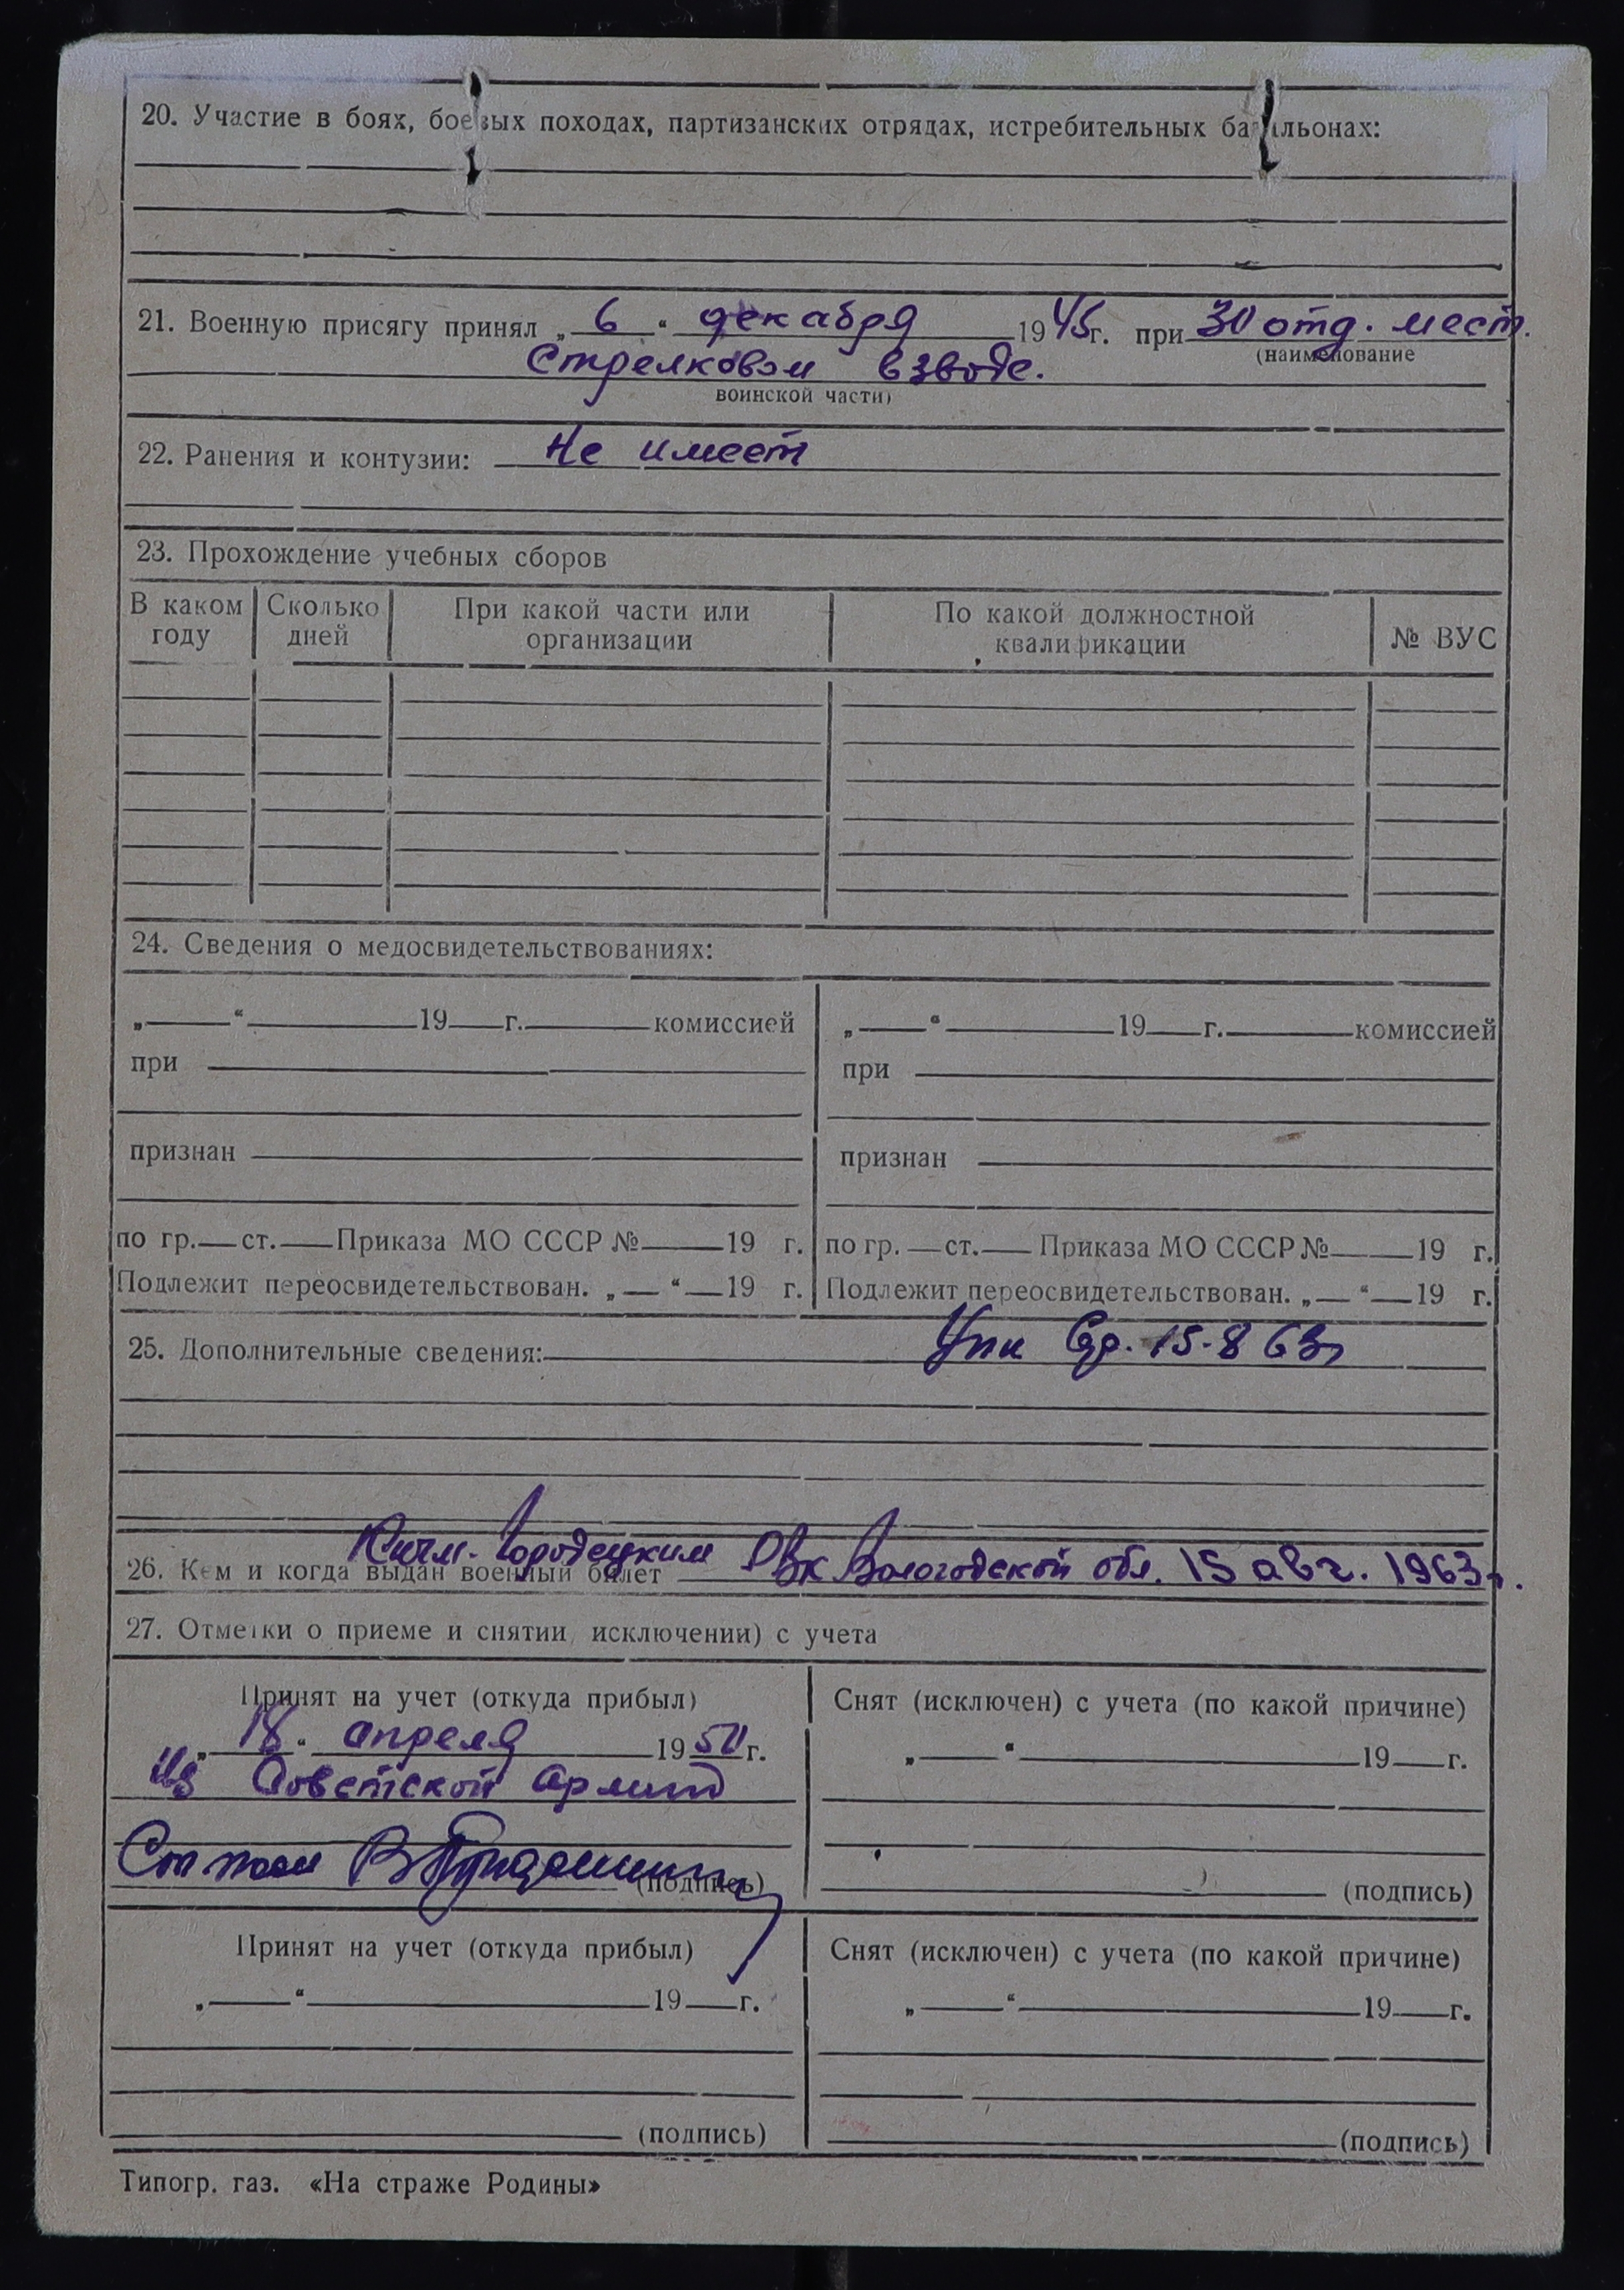 20. Участие в боях, боевых походах, партизанских отрядах, истребительных батальонах:
21. Военную присягу принял „ 6 “ декабря 1945г. при 30 отд. мест.
(наименование
Стрелковом взводе.
воинской части)
22. Ранения и контузии: Не имеет
23. Прохождение учебных сборов
В каком году Сколько дней При какой части или организации По какой должностной квалификации № ВУС
24. Сведения о медосвидетельствованиях:
„ “ 19 г. комиссией „ “ 19 г. комиссией
при при
признан признан
по гр. ст. Приказа МО СССР № 19 г. по гр. ст. Приказа МО СССР № 19 г.
Подлежит переосвидетельствован. „ “ 19 г. Подлежит переосвидетельствован. „ “ 19 г.
25. Дополнительные сведения: 15-8 63г
26. Кем и когда выдан военный билет Кичм-Городецким РВК Вологодской обл. 15 авг. 1963г.
27. Отметки о приеме и снятии, исключении) с учета
Принят на учет (откуда прибыл) Снят (исключен) с учета (по какой причине)
„ 18 “ апреля 1950г. „ “ 19 г.
Из Советской Армии
(подпись) (подпись)
Принят на учет (откуда прибыл) Снят (исключен) с учета (по какой причине)
„ “ 19 г. „ “ 19 г.
(подпись) (подпись)
Типогр. газ. «На страже Родины»